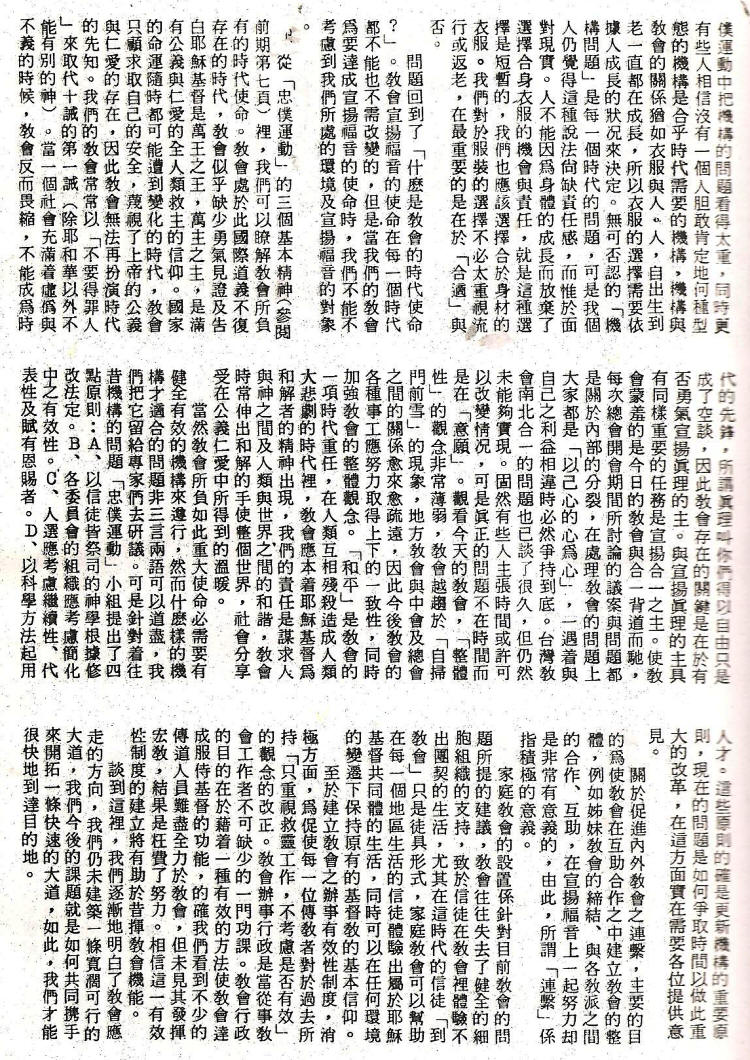 僕運動中把機構的問題看得太重，同時更
有些人相信沒有一個人胆敢肯定地何種型
態的機構是合乎時代需要的機構，機構與
教會的關係猶如衣服與人。人，自出生到
老一直都在成長，所以衣服的選擇需要依
據人成長的狀況來決定。無可否認的「機
構問題」是每一個時代的問題，可是我個
人仍覺得這種說法尚缺責任感，而惟於面
對現實。人不能因爲身體的成長而放棄了
選擇合身衣服的機會與責任，就是這種選
擇是短暫的，我們也應該選擇合於身材的
衣服。我們對於服裝的選擇不必太重視流
行或返老，在最重要的是在於「合適」與
否。
問題回到了「什麼是教會的時代使命
？」。教會宣揚福音的使命在每一個時代
都不能也不需改變的，但是當我們的教會
爲要達成宣揚福音的使命時，我們不能不
考慮到我們所處的環境及宣揚福音的對象
。
從「忠僕運動」的三個基本精神（參閱
前期第七頁）裡，我們可以瞭解教會所負
有的時代使命。教會處於此國際道義不復
存在的時代，教會似乎缺少勇氣見證及告
白耶穌基督是萬王之王，萬主之主，是滿
有公義與仁愛的全人類救主的信仰。國家
的命運隨時都可能遭到變化的時代，教會
只顧求取自己的安全，蔑視了上帝的公義
與仁愛的存在，因此教會無法再扮演時代
的先知。我們的教會常常以「不要得罪人
」來取代十誡的第一誡（除耶和華以外不
能有別的神）。當一個社會充滿着虛僞與
不義的時候，教會反而畏縮，不能成爲時
代的先鋒，所講眞理叫你們得以自由只是
成了空談，因此教會存在的關鍵是在於有
否勇氣宣揚眞理的主。與宣揚眞理的主具
有同樣重要的任務是宣揚合一之主。使教
會蒙羞的是今日的教會與合一背道而馳，
每次總會開會期間所討論的議案與問題都
是關於內部的分裂，在處理教會的問題上
大家都是「以己心的心爲心」，一遇着與
自己之利益相違時必然爭持到底。台灣教
會南北合一的問題也已談了很久，但仍然
未能夠實現。固然有些人主張時間或許可
以改變情況，可是眞正的問題不在時間而
是在「意願」。觀看今天的教會，「整體
性」的觀念非常薄弱，教會越趨於「自掃
門前雪」的現象，地方教會與中會及總會
之間的關係愈來愈疏遠，因此今後教會的
各種事工應努力取得上下的一致性，同時
加強教會的整體觀念。「和平」是教會的
一項時代重任，在人類互相殘殺造成人類
大悲劇的時代裡，教會應本着耶穌基督爲
和解者的精神出現，我們的責任是謀求人
與神之間及人類與世界之間的和諧，教會
時常伸出和解的手使整個世界，社會分享
受在公義仁愛中所得到的溫暖。
當然教會所負如此重大使命必需要有
健全有效的機構來遵行，然而什麼樣的機
構才適合的問題非三言兩語可以道盡，我
們把它留給專家們去研議。可是針對着往
昔機構的問題「忠僕運動」小組提出了四
點原則：A、以信徒皆祭司的神學根據修
改法定。B、各委員會的組織應考慮簡化
中之有效性。C、人選應考慮繼續性、代
表性及賦有恩賜者。D、以科學方法起用
人才。這些原則的確是更新機構的重要原
則，現在的問題是如何爭取時間以做此重
大的改革，在這方面實在需要各位提供意
見。
關於促進內外教會之連繫，主要的目
的爲使教會在互助合作之中建立教會的整
體，例如姊妹教會的締結、與各教派之間
的合作、互助，在宣揚福音上一起努力却
是非常有意義的，由此，所謂「連繫」係
指積極的意義。
家庭教會的設置係針對目前教會的問
題所提的建議，教會往往失去了健全的細
胞組織的支持，致於信徒在教會裡體驗不
出團契的生活，尤其在這時代的信徒「到
教會」只是徒具形式，家庭教會可以幫助
在每一個地區生活的信徒體驗出屬於耶穌
基督共同體的生活，同時可以在任何環境
的變遷下保持原有的基督教的基本信仰。
至於建立教會之辦事有效性制度，消
極方面，爲促使每一位傳教者對於過去所
持「只重視救靈工作，不考慮是否有效」
的觀念的改正。教會辦事行政是當從事教
會工作者不可缺少的一門功課。教會行政
的目的在於藉着一種有效的方法使教會達
成服侍基督的功能，的確我們看到不少的
傳道人員雖盡全力於教會，但未見其發揮
宏敎，結果是枉費了努力。相信這一有效
性制度的建立將有助於昔揮教會機能。
談到這裡，我們逐漸地明白了教會應
走的方向，我們仍未建築一條寬闊可行的
大道，我們今後的課題就是如何共同携手
來開拓一條快速的大道，如此，我們才能
很快地到達目的地。